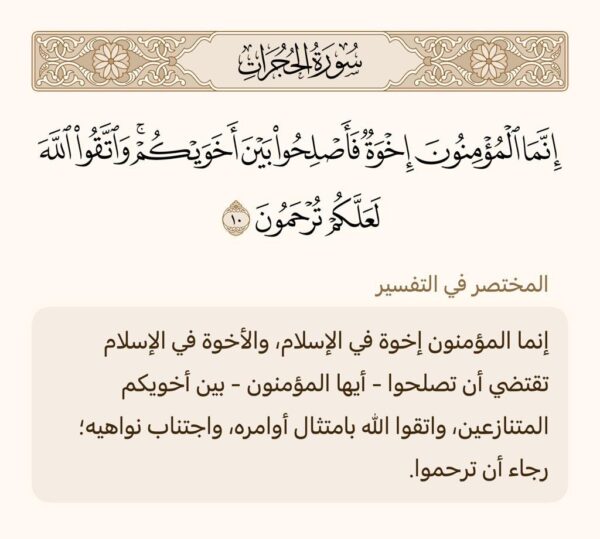 سُورَةُ الحُجُرَاتِ
إِنَّمَا ٱلۡمُؤۡمِنُونَ إِخۡوَةٞ فَأَصۡلِحُواْ بَيۡنَ أَخَوَيۡكُمۡۚ وَٱتَّقُواْ ٱللَّهَ
لَعَلَّكُمۡ تُرۡحَمُونَ ١٠
المختصر في التفسير
إنما المؤمنون إخوة في الإسلام، والأخوة في الإسلام
تقتضي أن تصلحوا - أيها المؤمنون - بين أخويكم
المتنازعين، واتقوا الله بامتثال أوامره، واجتناب نواهيه؛
رجاء أن ترحموا.